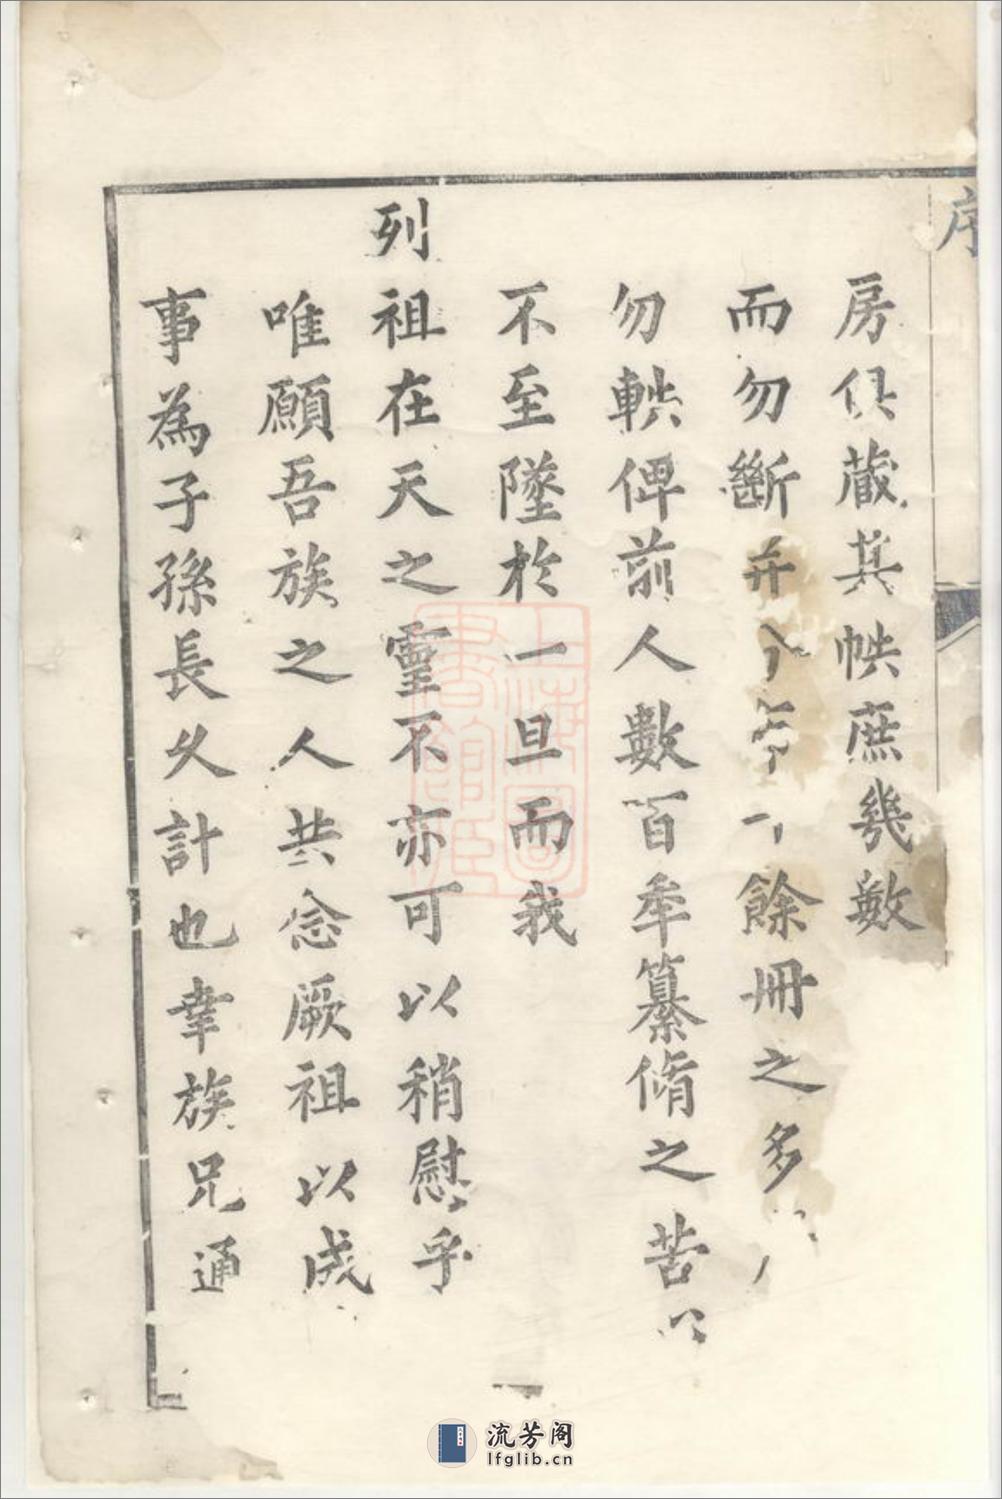 序
房俱藏其帙庶幾數
而勿斷 餘冊之多
勿軼俾前人數百年纂脩之苦
不至墜於一旦而我
列祖在天之靈不亦可以稍慰乎
唯願吾族之人共念厥祖以成
事為子孫長久計也幸族兄通
上海圖書館藏
流芳阁
lfglib.cn